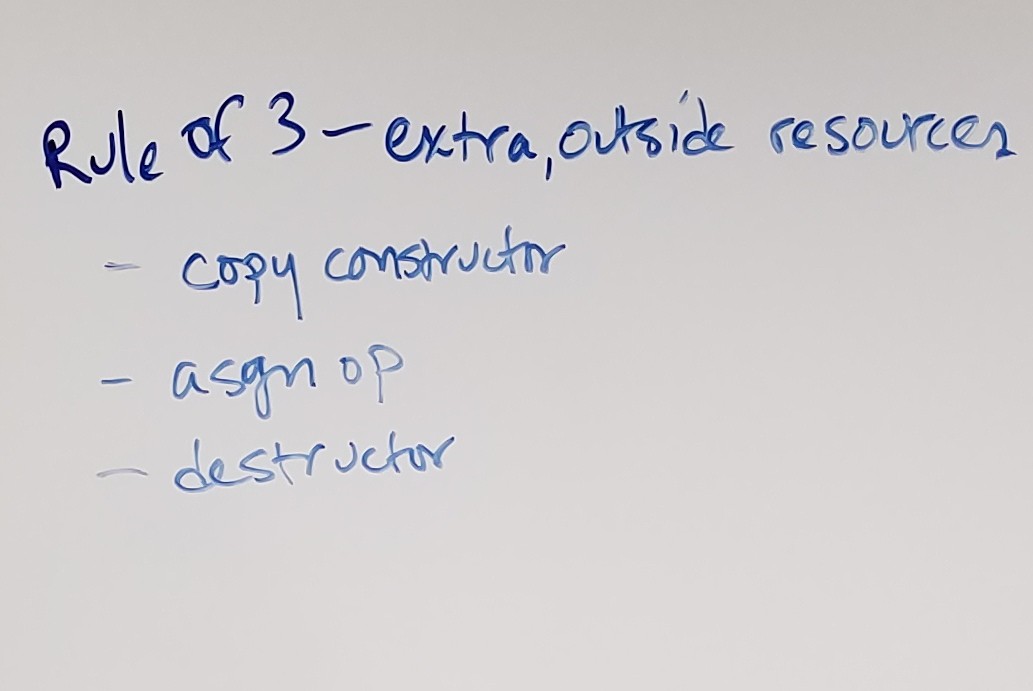 Rule of 3 - extra, outside resources
- copy constructor
- asgn op
- destructor